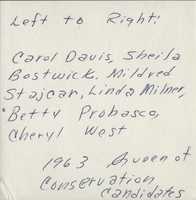 Left to Right:
Carol Davis, Sheila
Bostwick, Mildred
Stajcar, Linda Milner,
Betty Probasco,
Cheryl West
1963 Queen of
Conservation
Candidates